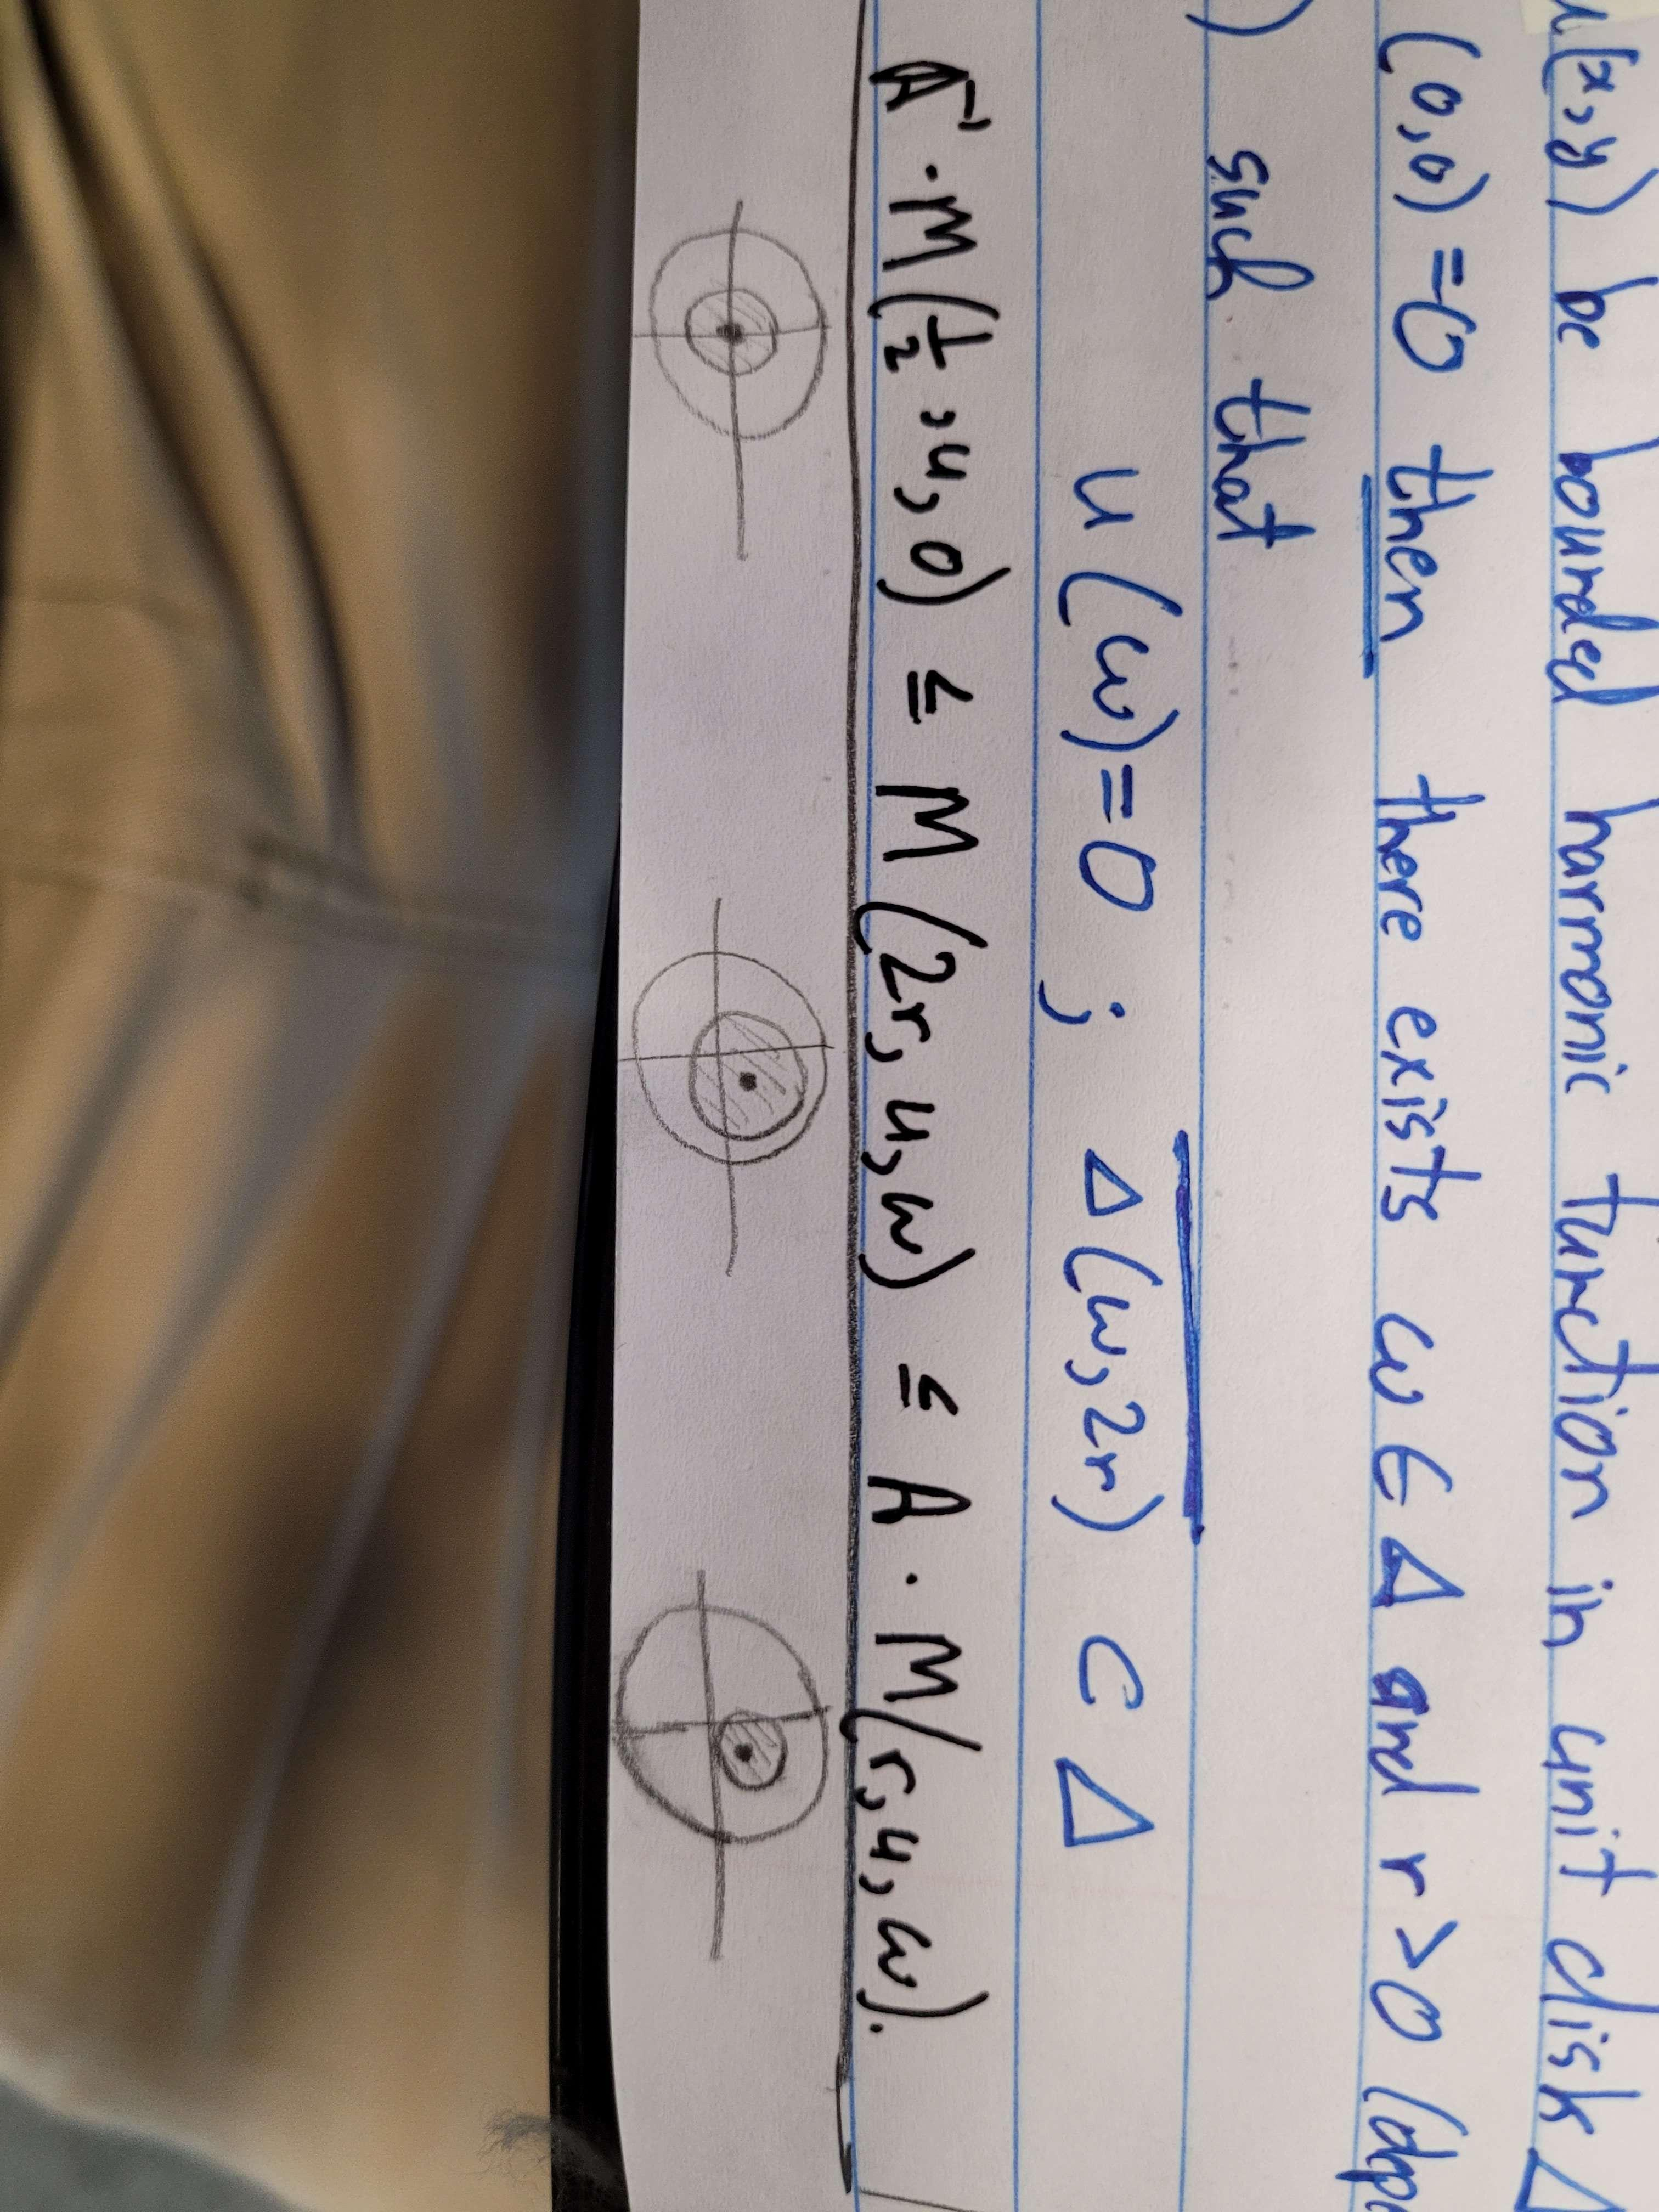 u(x,y) be bounded harmonic function in unit disk Δ
(0,0)=0 then there exists w ∈ Δ and r>0 (dpe
) such that
u(w)=0 ; Δ(w,2r) ⊂ Δ
A⁻¹ · M(1/2, u, 0) ≤ M(2r, u, w) ≤ A · M(r, u, w).